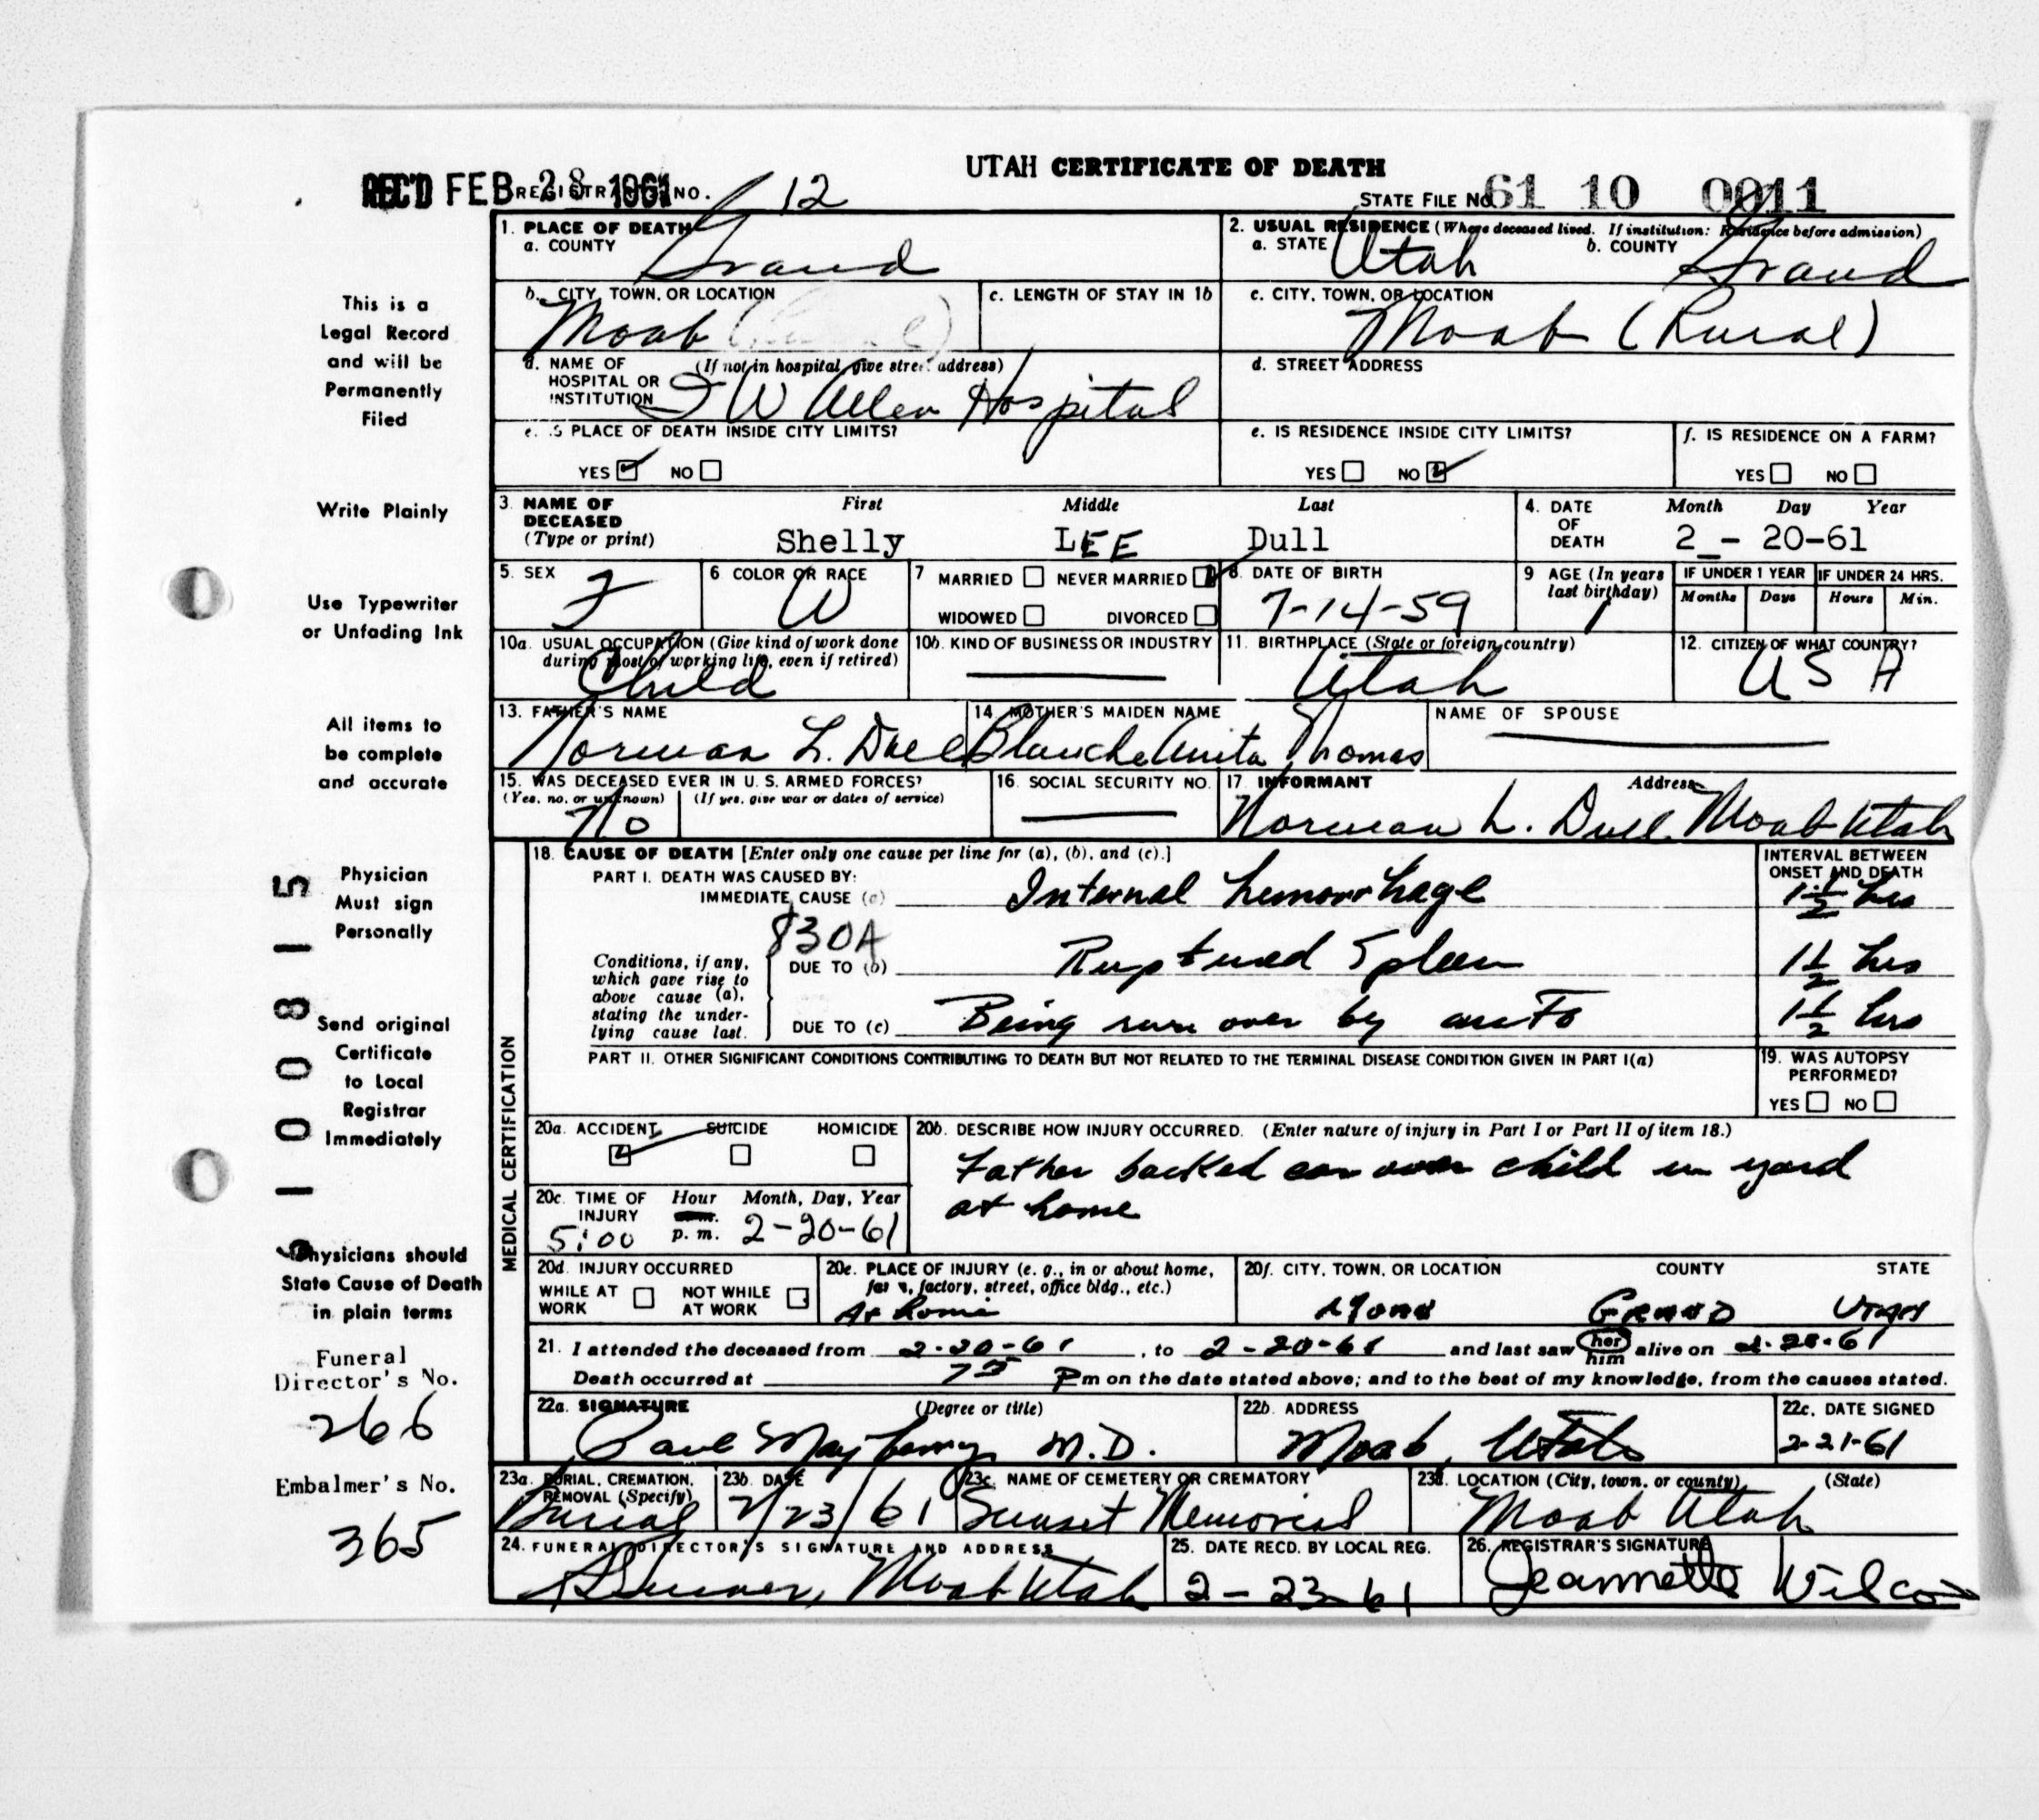 UTAH CERTIFICATE OF DEATH
REC'D FEB 28 1961 REGISTRAR'S NO. 12
STATE FILE NO. 61 10 0011
1. PLACE OF DEATH
a. COUNTY Grand
2. USUAL RESIDENCE (Where deceased lived. If institution: Residence before admission)
a. STATE Utah b. COUNTY Grand
b. CITY, TOWN, OR LOCATION Moab
c. LENGTH OF STAY IN 1b
c. CITY, TOWN, OR LOCATION Moab (Rural)
d. NAME OF HOSPITAL OR INSTITUTION (If not in hospital, give street address) I W Allen Hospital
d. STREET ADDRESS
e. IS PLACE OF DEATH INSIDE CITY LIMITS?
YES ☑ NO ☐
e. IS RESIDENCE INSIDE CITY LIMITS?
YES ☐ NO ☑
f. IS RESIDENCE ON A FARM?
YES ☐ NO ☐
3. NAME OF DECEASED (Type or print) First Middle Last
Shelly LEE Dull
4. DATE OF DEATH Month Day Year
2 - 20-61
5. SEX F
6 COLOR OR RACE W
7 MARRIED ☐ NEVER MARRIED ☑
WIDOWED ☐ DIVORCED ☐
8. DATE OF BIRTH 7-14-59
9 AGE (In years last birthday) 1
IF UNDER 1 YEAR Months Days
IF UNDER 24 HRS. Hours Min.
10a. USUAL OCCUPATION (Give kind of work done during most of working life, even if retired) Child
10b. KIND OF BUSINESS OR INDUSTRY
11. BIRTHPLACE (State or foreign country) Utah
12. CITIZEN OF WHAT COUNTRY? USA
13. FATHER'S NAME Norman L. Dull
14. MOTHER'S MAIDEN NAME Blanche Anita Thomas
NAME OF SPOUSE
15. WAS DECEASED EVER IN U. S. ARMED FORCES?
(Yes, no, or unknown) (If yes, give war or dates of service)
No
16. SOCIAL SECURITY NO.
17. INFORMANT Address
Norman L. Dull, Moab Utah
MEDICAL CERTIFICATION
18. CAUSE OF DEATH [Enter only one cause per line for (a), (b), and (c).]
INTERVAL BETWEEN ONSET AND DEATH
PART I. DEATH WAS CAUSED BY:
IMMEDIATE CAUSE (a) Internal hemorrhage 1 1/2 hrs
830A
Conditions, if any, which gave rise to above cause (a), stating the underlying cause last.
DUE TO (b) Ruptured Spleen 1 1/2 hrs
DUE TO (c) Being run over by auto 1 1/2 hrs
PART II. OTHER SIGNIFICANT CONDITIONS CONTRIBUTING TO DEATH BUT NOT RELATED TO THE TERMINAL DISEASE CONDITION GIVEN IN PART I(a)
19. WAS AUTOPSY PERFORMED?
YES ☐ NO ☐
20a. ACCIDENT ☑ SUICIDE ☐ HOMICIDE ☐
20b. DESCRIBE HOW INJURY OCCURRED. (Enter nature of injury in Part I or Part II of item 18.)
Father backed car over child in yard
at home
20c. TIME OF INJURY Hour a.m. p.m. Month, Day, Year
5:00 2-20-61
20d. INJURY OCCURRED
WHILE AT WORK ☐ NOT WHILE AT WORK ☑
20e. PLACE OF INJURY (e. g., in or about home, farm, factory, street, office bldg., etc.)
At home
20f. CITY, TOWN, OR LOCATION COUNTY STATE
Moab GRAND UTAH
21. I attended the deceased from 2-20-61, to 2-20-61 and last saw her him alive on 2-20-61
Death occurred at Pm on the date stated above; and to the best of my knowledge, from the causes stated.
22a. SIGNATURE (Degree or title)
Paul Mayberry M.D.
22b. ADDRESS Moab, Utah
22c. DATE SIGNED 2-21-61
23a. BURIAL, CREMATION, REMOVAL (Specify) Burial
23b. DATE 2/23/61
23c. NAME OF CEMETERY OR CREMATORY Sunset Memorial
23d. LOCATION (City, town, or county) (State) Moab Utah
24. FUNERAL DIRECTOR'S SIGNATURE AND ADDRESS
Moab Utah
25. DATE RECD. BY LOCAL REG. 2-23-61
26. REGISTRAR'S SIGNATURE Jeannette Wilcox
This is a
Legal Record
and will be
Permanently
Filed
Write Plainly
Use Typewriter
or Unfading Ink
All items to
be complete
and accurate
Physician
Must sign
Personally
Send original
Certificate
to Local
Registrar
Immediately
Physicians should
State Cause of Death
in plain terms
Funeral
Director's No.
266
Embalmer's No.
365